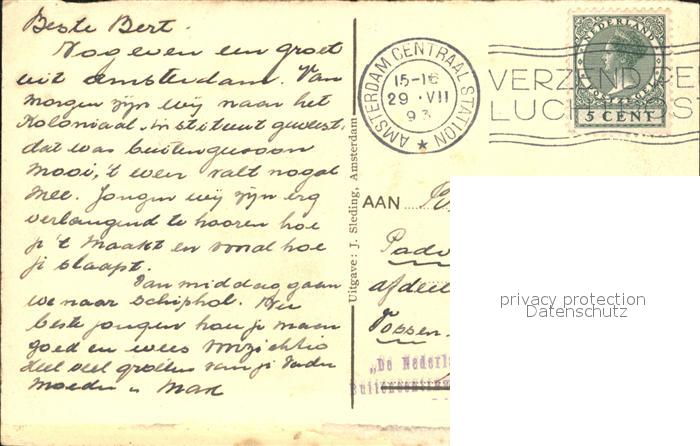 Beste Bert.
Nog even een groet
uit Amsterdam. Van
morgen zijn wij naar het
Koloniaal-instituut geweest,
dat was buitengewoon
mooi, 't weer valt nogal
mee. Jongen wij zijn erg
verlangend te hooren hoe
je 't maakt en vooral hoe
je slaapt.
Van middag gaan
we naar Schiphol.
beste jongen hou je maar
goed en wees voorzichtig
veel groeten van je Vader
Moeder en Max
Uitgave: J. Sleding, Amsterdam
AMSTERDAM CENTRAAL STATION
15-16
29 · VII
193
VERZEND
LUCH
NEDERLAND
5 CENT
AAN
afdeel
"De Nederl
Buitencentrum
privacy protection
Datenschutz